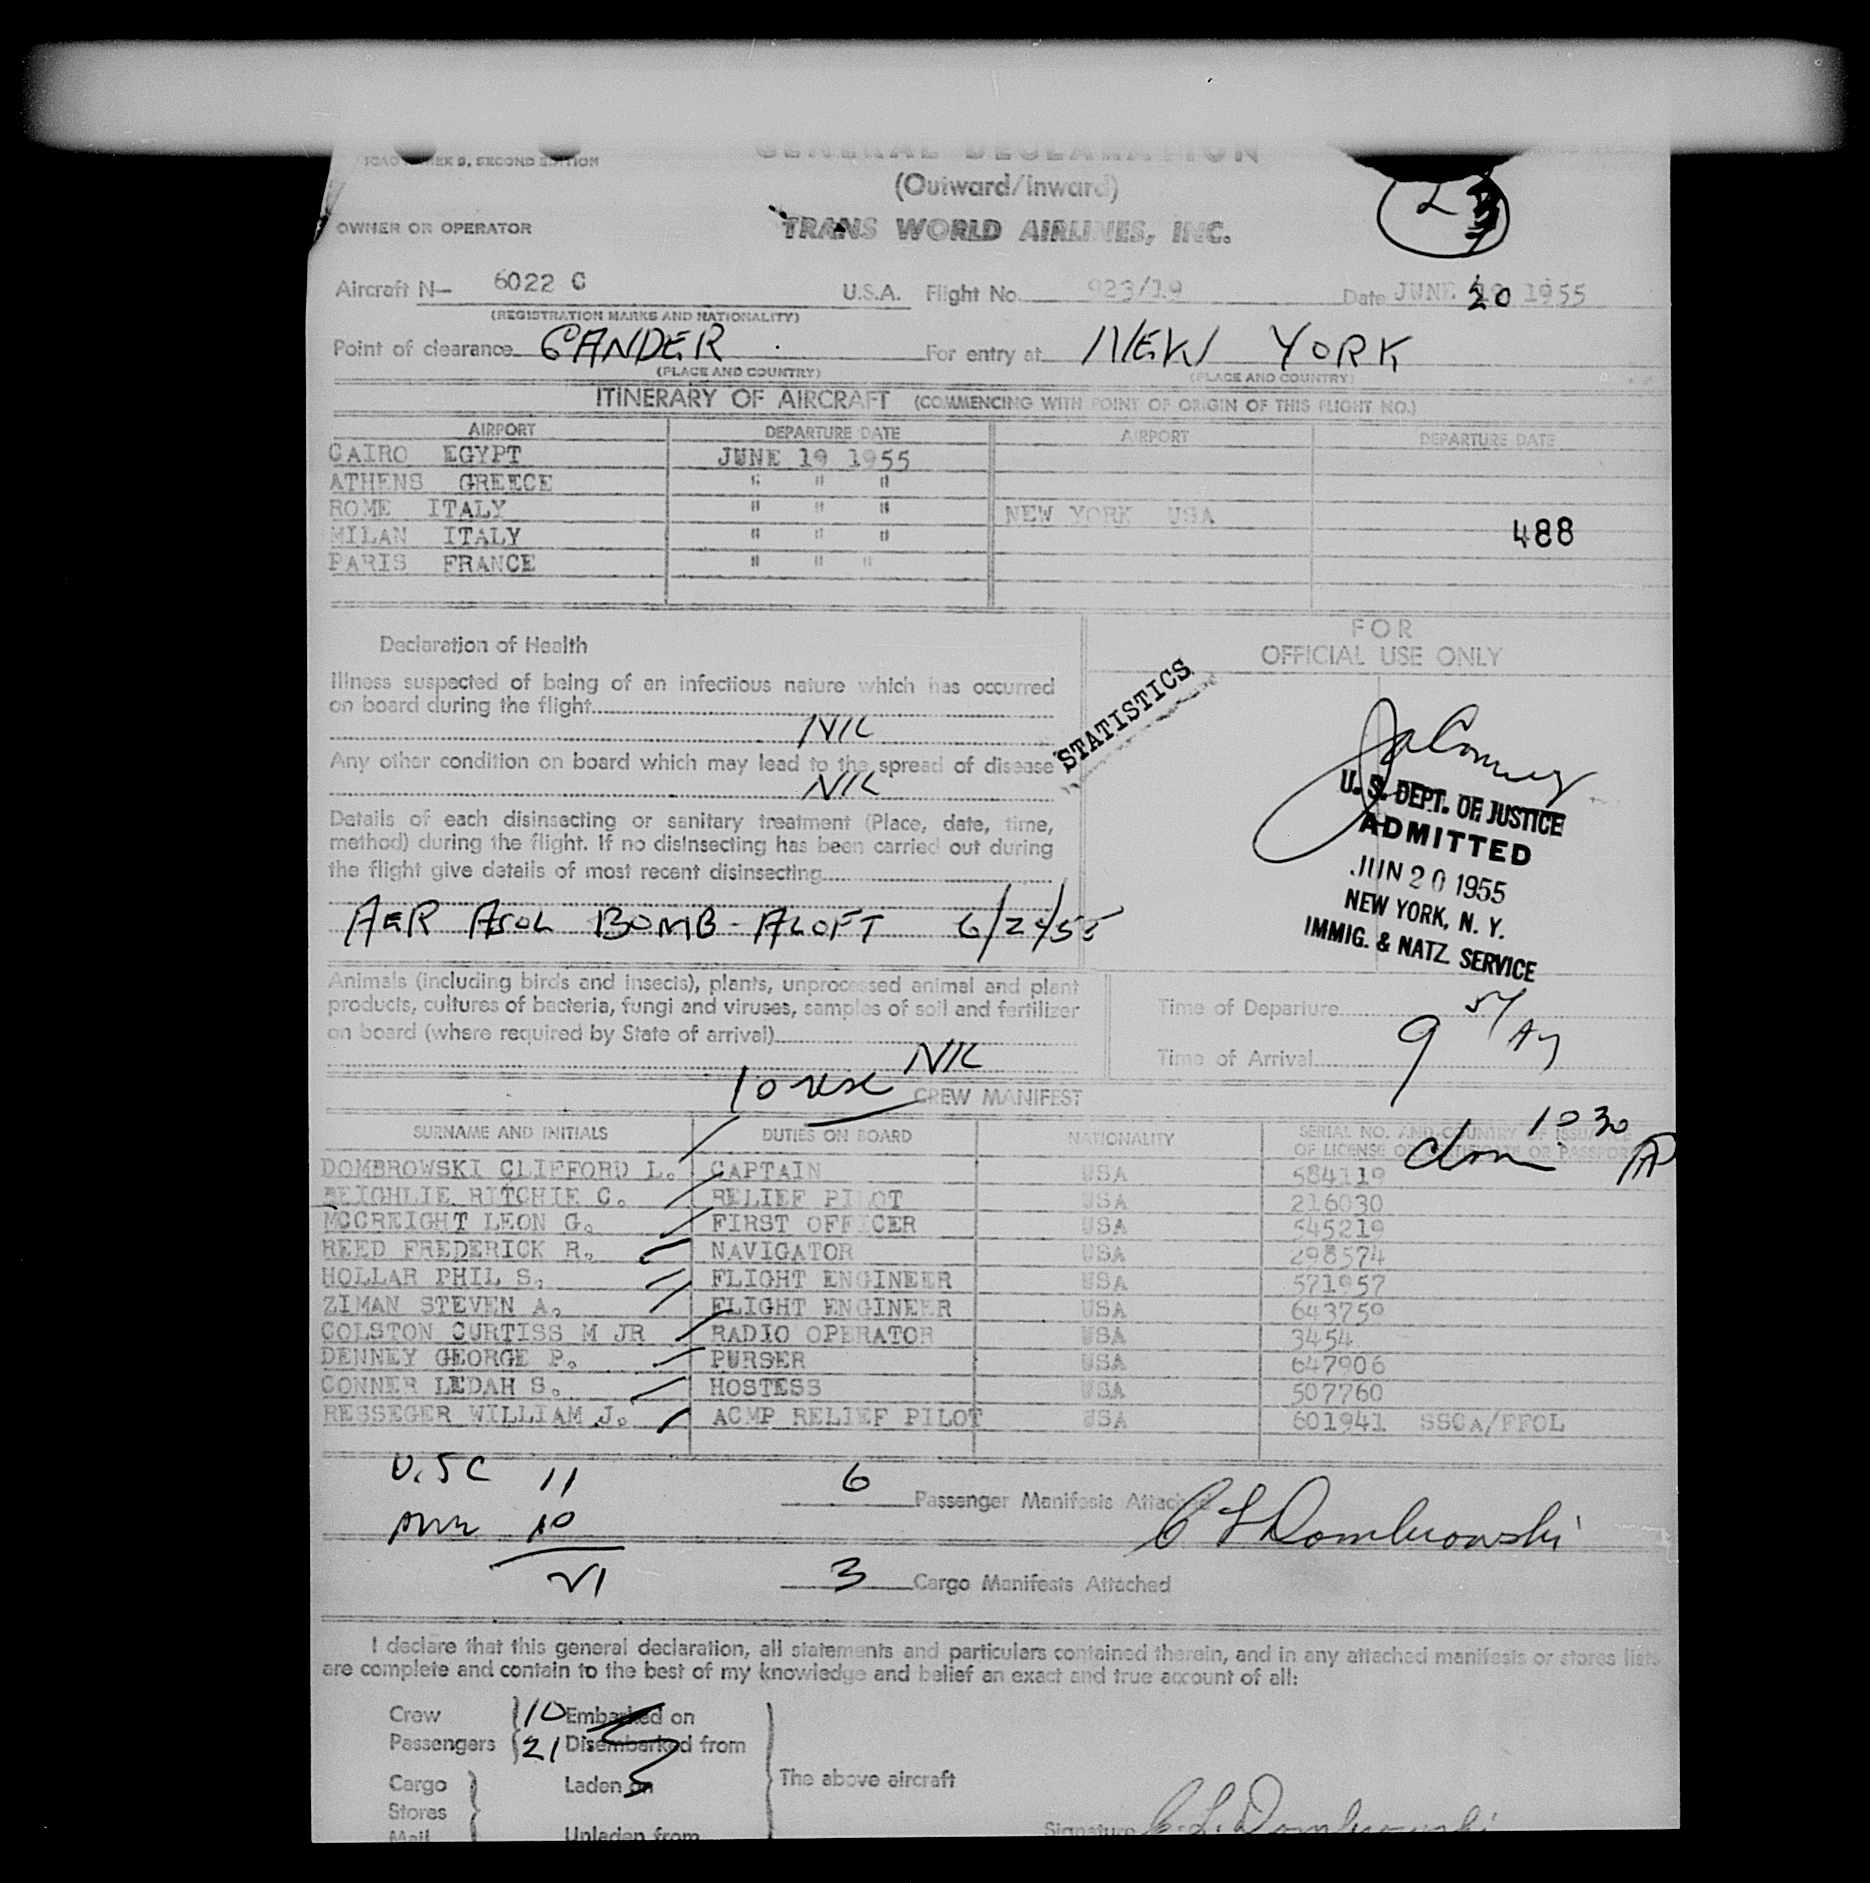 SECOND EDITION
GENERAL DECLARATION
(Outward/Inward)
OWNER OR OPERATOR
TRANS WORLD AIRLINES, INC.
Aircraft N— 6022 C U.S.A. Flight No. 923/19 Date JUNE 20 1955
(REGISTRATION MARKS AND NATIONALITY)
Point of clearance GANDER For entry at NEW YORK
(PLACE AND COUNTRY) (PLACE AND COUNTRY)
ITINERARY OF AIRCRAFT (COMMENCING WITH POINT OF ORIGIN OF THIS FLIGHT NO.)
AIRPORT DEPARTURE DATE AIRPORT DEPARTURE DATE
CAIRO EGYPT JUNE 19 1955
ATHENS GREECE " " "
ROME ITALY " " " NEW YORK USA
MILAN ITALY " " " 488
PARIS FRANCE " " "
Declaration of Health
FOR
OFFICIAL USE ONLY
Illness suspected of being of an infectious nature which has occurred
on board during the flight
NIL
STATISTICS
Any other condition on board which may lead to the spread of disease
NIL
Details of each disinsecting or sanitary treatment (Place, date, time,
method) during the flight. If no disinsecting has been carried out during
the flight give details of most recent disinsecting
AER ASOL BOMB - ALOFT
U. S. DEPT. OF JUSTICE
ADMITTED
JUN 20 1955
NEW YORK, N. Y.
IMMIG. & NATZ. SERVICE
Animals (including birds and insects), plants, unprocessed animal and plant
products, cultures of bacteria, fungi and viruses, samples of soil and fertilizer
on board (where required by State of arrival)
NIL
Time of Departure
Time of Arrival 9
10
CREW MANIFEST
1030
SURNAME AND INITIALS DUTIES ON BOARD NATIONALITY SERIAL NO. AND COUNTRY OF ISSUANCE
OF LICENSE OR CERTIFICATE OR PASSPORT
DOMBROWSKI CLIFFORD L. CAPTAIN USA 584119
BEIGHLIE RITCHIE C. RELIEF PILOT USA 216030
MCCREIGHT LEON G. FIRST OFFICER USA 545219
REED FREDERICK R. NAVIGATOR USA 298574
HOLLAR PHIL S. FLIGHT ENGINEER USA 571957
ZIMAN STEVEN A. FLIGHT ENGINEER USA 643759
COLSTON CURTISS M JR RADIO OPERATOR USA 3454
DENNEY GEORGE P. PURSER USA 647906
CONNER LEDAH S. HOSTESS USA 507760
RESSEGER WILLIAM J. ACMP RELIEF PILOT USA 601941 SSCA/FFOL
U.S C 11
6 Passenger Manifests Attached
C L Dombrowski
10
21
3 Cargo Manifests Attached
I declare that this general declaration, all statements and particulars contained therein, and in any attached manifests or stores lists
are complete and contain to the best of my knowledge and belief an exact and true account of all:
Crew 10 Embarked on
Passengers 21 Disembarked from
Cargo Laden on The above aircraft
Stores
Mail Unladen from
Signature C. L. Dombrowski